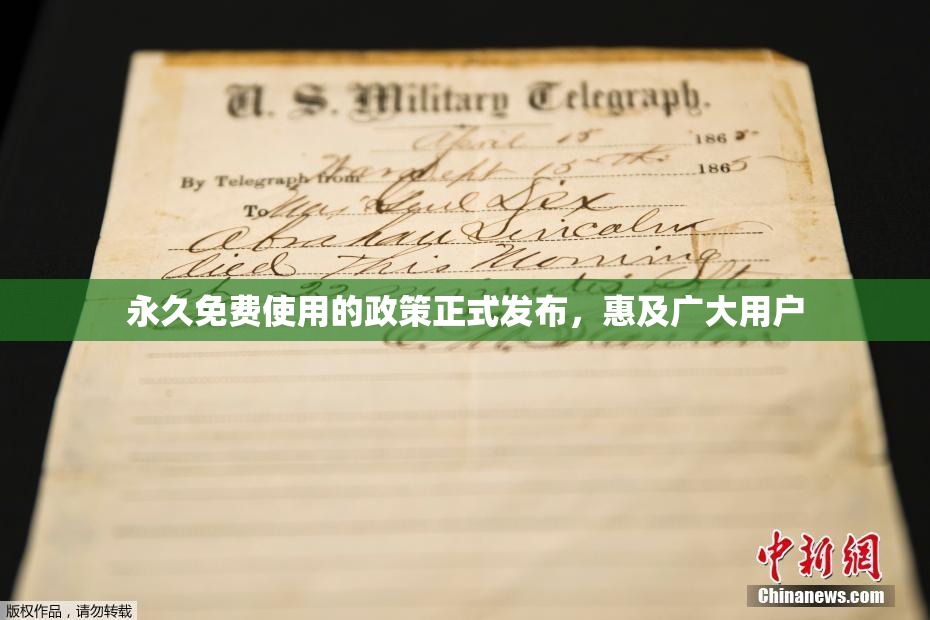 U. S. Military Telegraph.
April 15 1865
By Telegraph from War Dept 15th 1865
To Maj Genl Dix
Abraham Lincoln
died This Morning
at 22 minutes after
永久免费使用的政策正式发布，惠及广大用户
中新网
Chinanews.com
版权作品，请勿转载